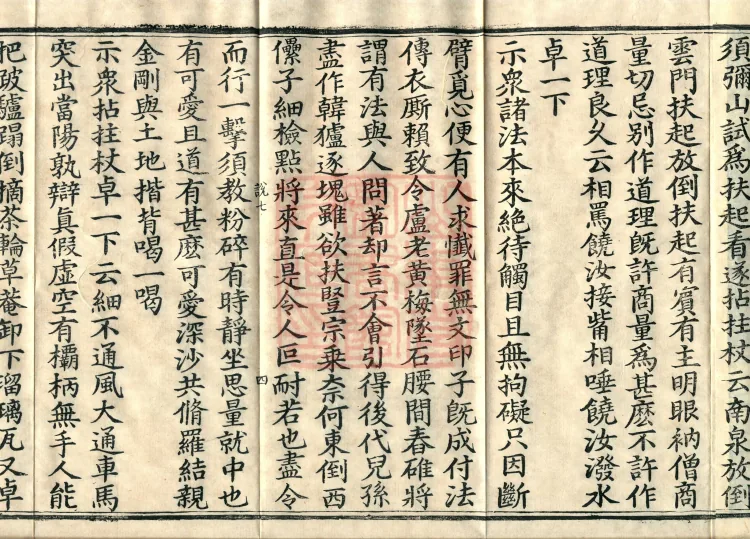 須彌山試爲扶起看遂拈拄杖云南泉放倒
雲門扶起放倒扶起有賓有主明眼衲僧商
量切忌別作道理旣許商量爲甚麽不許作
道理良久云相罵饒汝接觜相唾饒汝潑水
卓一下
示衆諸法本來絶待觸目且無拘礙只因斷
臂覓心便有人求懺罪無文印子旣成付法
傳衣厮賴致令盧老黃梅墜石腰間舂碓將
謂有法與人問著却言不會引得後代兒孫
盡作韓獹逐塊雖欲扶豎宗乗柰何東倒西
儽子細檢點將來直是令人叵耐若也盡令
説七 四
而行一擊須教粉碎有時靜坐思量就中也
有可愛且道有甚麽可愛深沙共脩羅結親
金剛與土地揩背喝一喝
示衆拈拄杖卓一下云細不通風大通車馬
突出當陽孰辯眞假虛空有欛柄無手人能
把跛驢蹋倒摘茶輪草菴卸下瑠璃瓦又卓